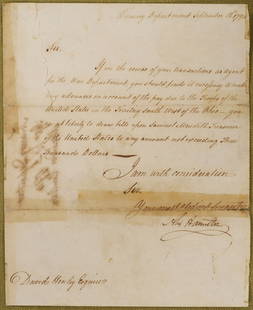 Treasury Department September 179
Sir
If in the course of your transactions as agent
for the War Department you should find it necessary to make
any advances on account of the pay due to the Troops of the
United States in the Territory South West of the Ohio — you
are at liberty to draw bills upon Samuel Meredith Treasurer
of the United States to any amount not exceeding Three
thousand Dollars —
I am with consideration
Sir
Your most Obedient Servant
Alex Hamilton
David Henley Esquire